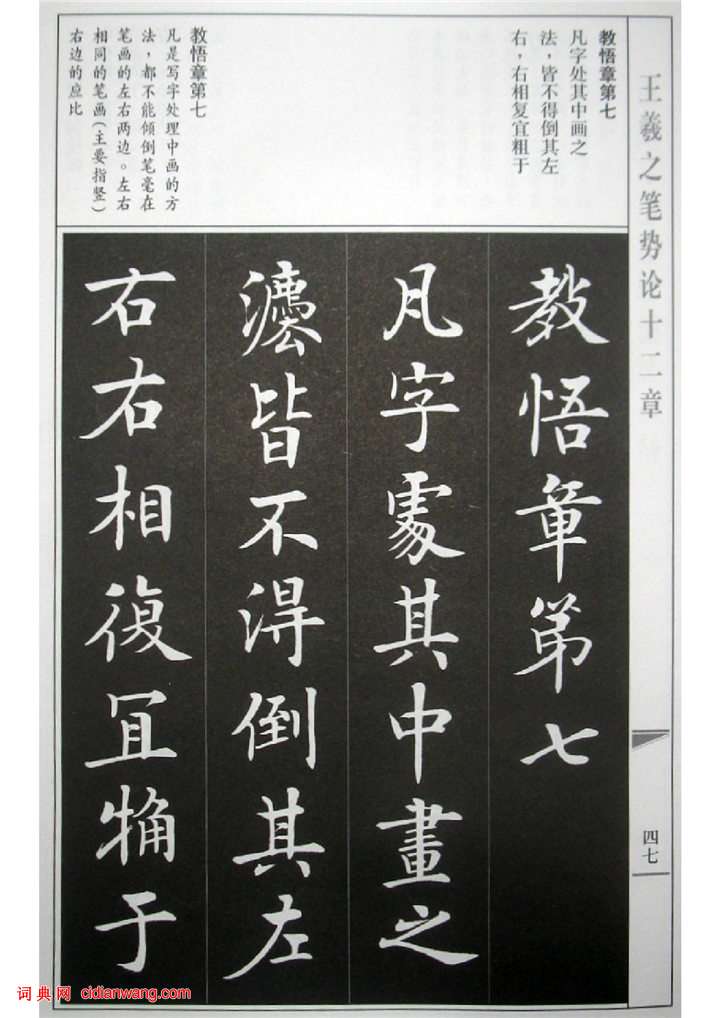 王羲之笔势论十二章
四七
教悟章第七
凡字处其中画之
法，皆不得倒其左
右，右相复宜粗于
教悟章第七
凡是写字处理中画的方
法，都不能倾倒笔毫在
笔画的左右两边。左右
相同的笔画(主要指竖)
右边的应比
教悟章第七
凡字處其中畫之
灋皆不得倒其左
右右相復宜觕于
词典网 cidianwang.com